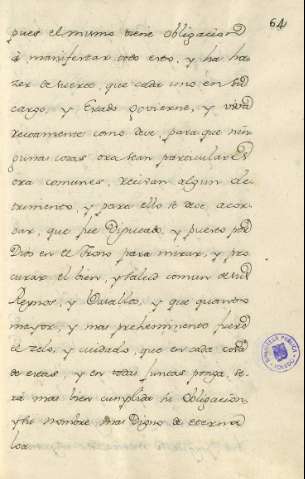 64
pues el mismo tiene obligacion
à manifestar todo esto, y ha ha
zer de suerte, que cada uno en su
cargo, y Estado govierne, y viva
rectamente como deve, para que nin
gunas cosas ora sean particulares
ora comunes, recivan algun de
trimento, y para ello se deve acor
dar, que fue Diputado, y puesto por
Dios en el Trono para mirar, y pro
curar el bien, y salud comun de sus
Reynos, y Vasallos, y que quanto
mayor, y mas preheminente fuere
el zelo, y cuidado, que en cada cosa
de estas, y en todas juntas ponga, se
rá mas bien cumplida su obligacion
y su nombre mas Digno de eterna
loa
BIBLIOTECA PUBLICA
TOLEDO